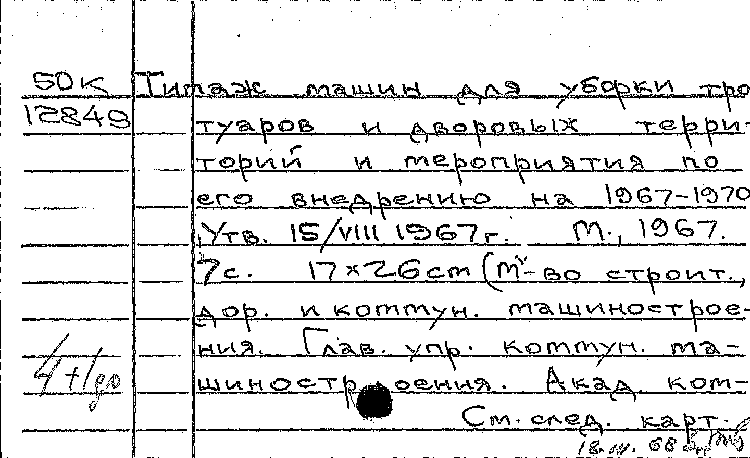 50К Типаж машин для уборки тро
12849 туаров и дворовых терри-
торий и мероприятия по
его внедрению на 1967-1970
Утв. 15/VIII 1967г. М., 1967.
7с. 17×26cm (М-во строит.,
дор. и коммун. машинострое-
ния. Глав. упр. коммун. ма-
4+1 др шиностроения. Акад. ком-
См. след. карт.
18.IV. 68